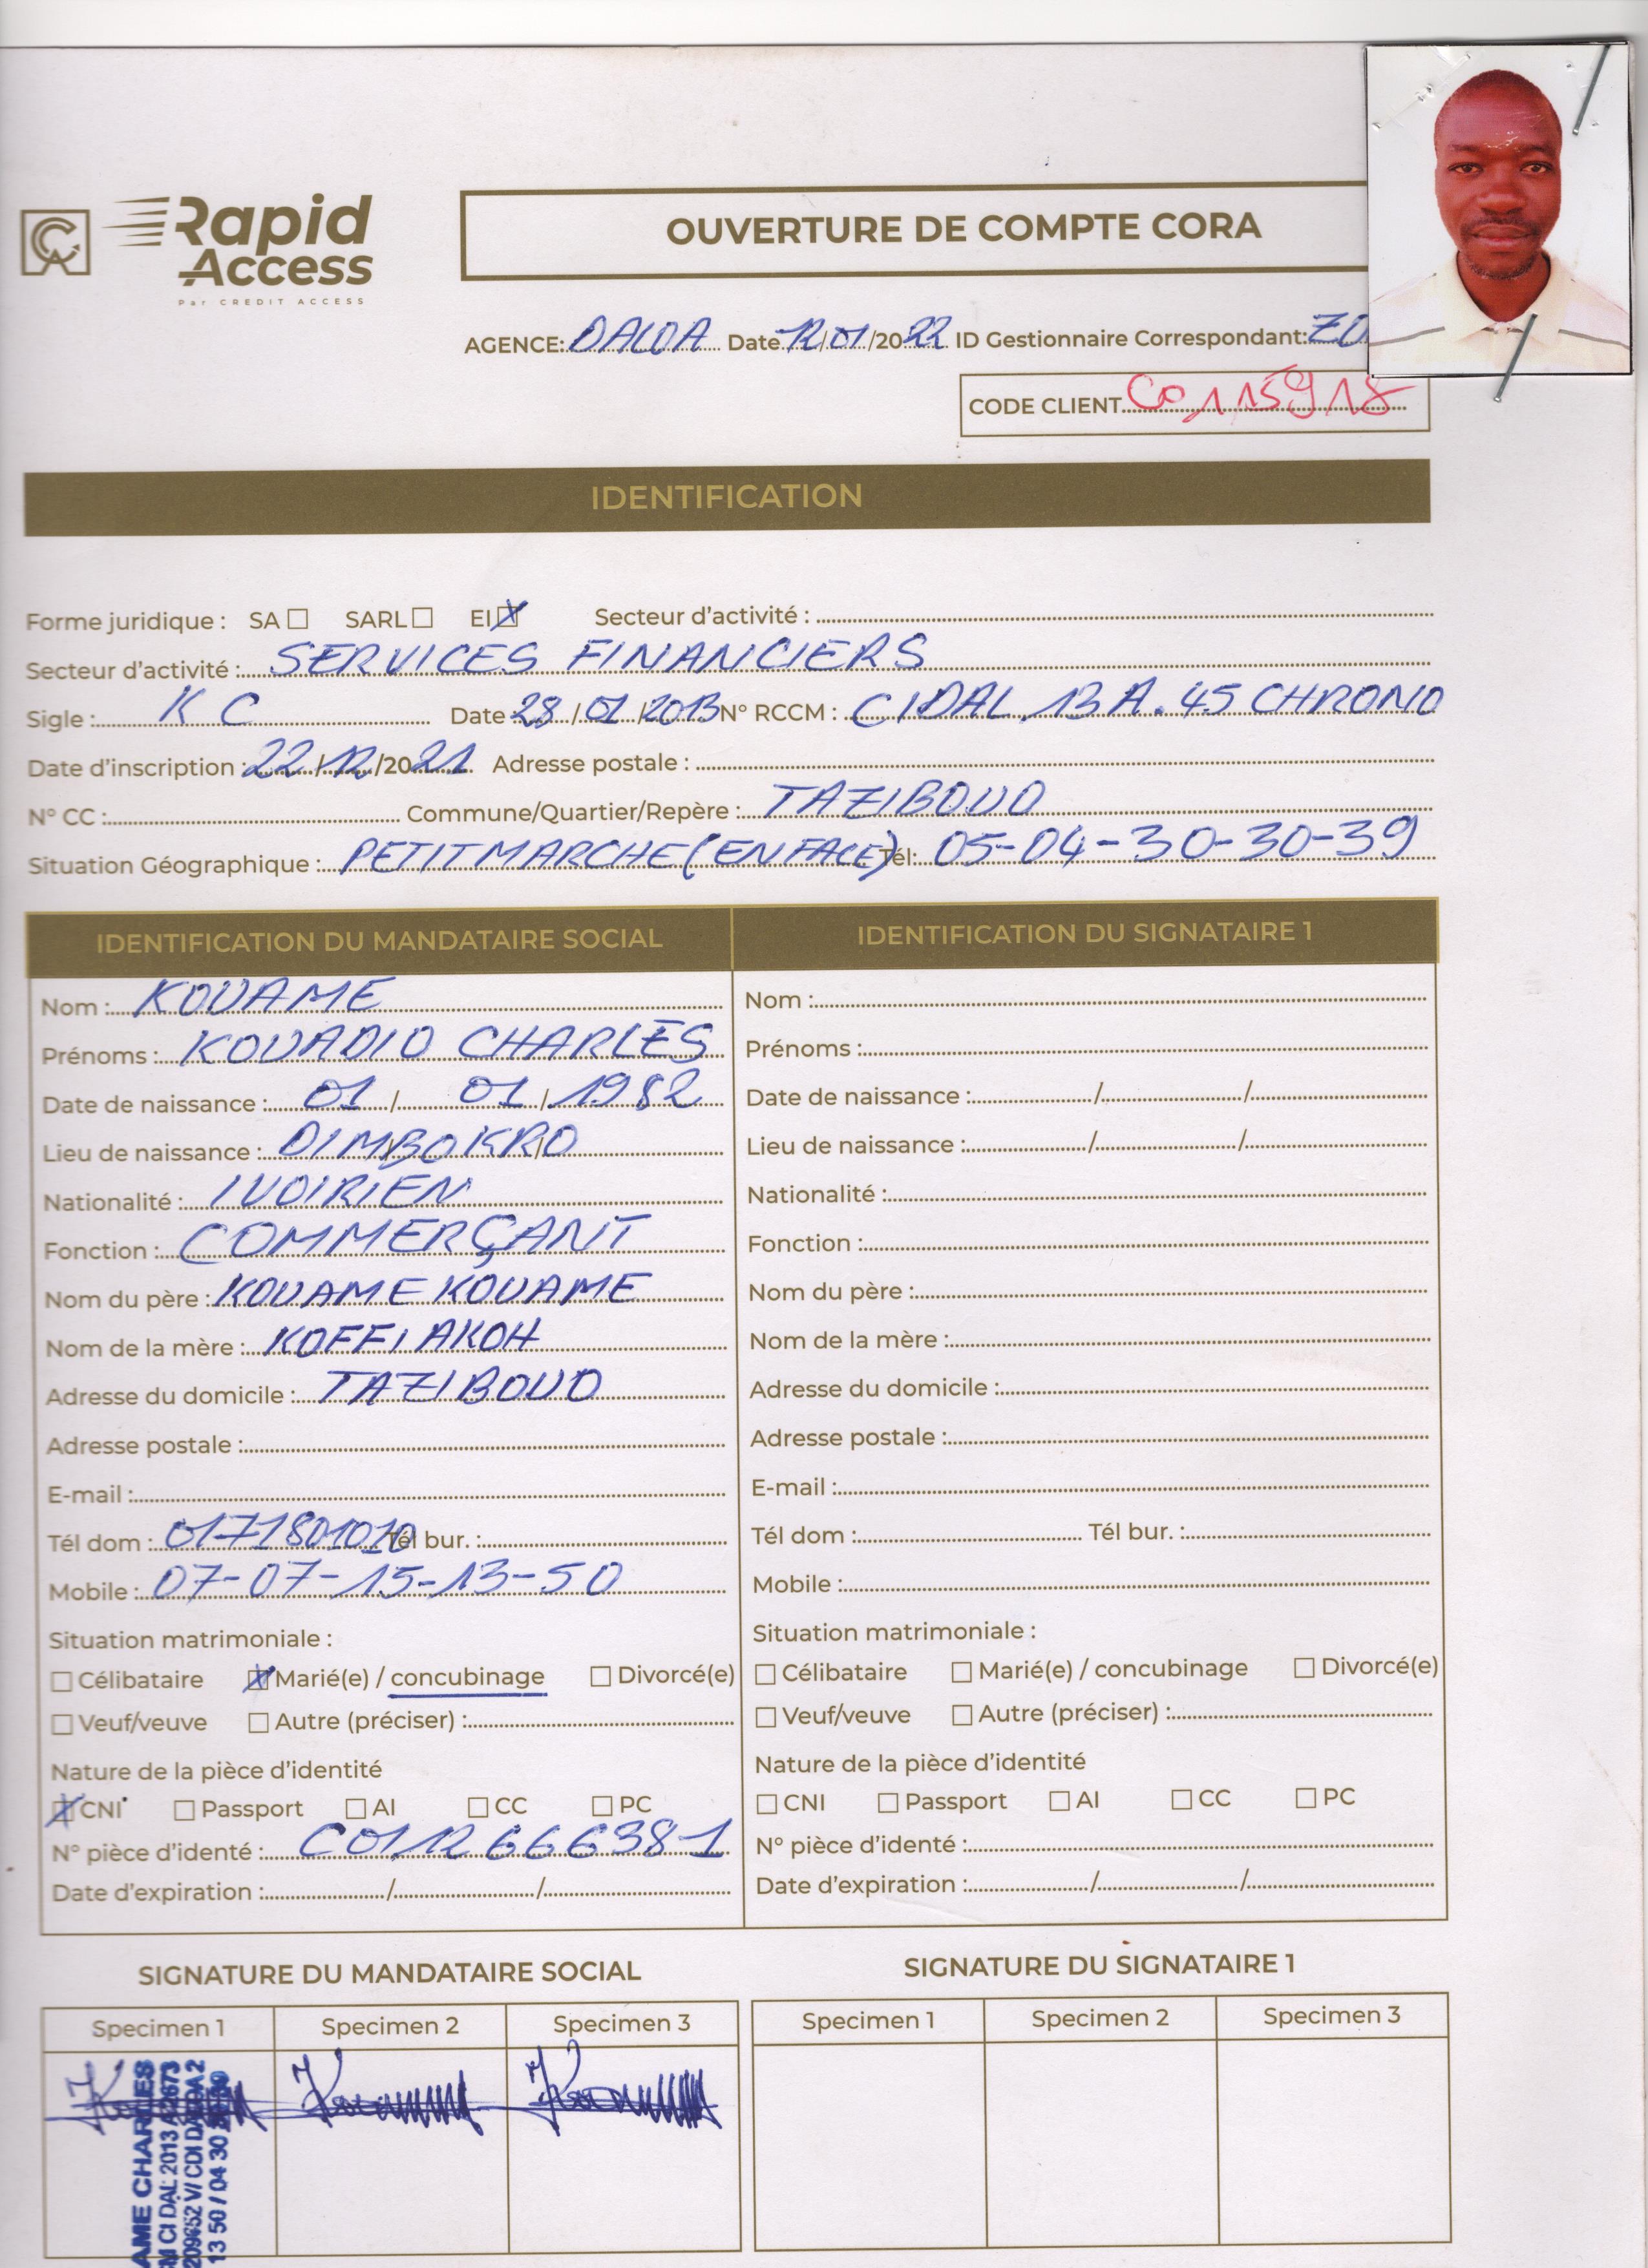 Rapid
Access
Par CREDIT ACCESS
OUVERTURE DE COMPTE CORA
AGENCE: DALOA Date 12/01/2022 ID Gestionnaire Correspondant:
CODE CLIENT C0115918
IDENTIFICATION
Forme juridique : SA SARL EI X Secteur d'activité :
Secteur d'activité : SERVICES FINANCIERS
Sigle : K C Date 28/01/2013 N° RCCM : CIDAL.13A.45 CHRONO
Date d'inscription : 22/12/2021 Adresse postale :
N° CC : Commune/Quartier/Repère : TAZIBOUO
Situation Géographique : PETIT MARCHE (EN FACE) Tél: 05-04-30-30-39
IDENTIFICATION DU MANDATAIRE SOCIAL
Nom : KOUAME
Prénoms : KOUADIO CHARLES
Date de naissance : 01 / 01 / 1982
Lieu de naissance : DIMBOKRO
Nationalité : IVOIRIEN
Fonction : COMMERÇANT
Nom du père : KOUAME KOUAME
Nom de la mère : KOFFI AKOH
Adresse du domicile : TAZIBOUO
Adresse postale :
E-mail :
Tél dom : 0171801020 Tél bur. :
Mobile : 07-07-15-13-50
Situation matrimoniale :
Célibataire X Marié(e) / concubinage Divorcé(e)
Veuf/veuve Autre (préciser) :
Nature de la pièce d'identité
X CNI Passport AI CC PC
N° pièce d'identé : C0112666381
Date d'expiration : / /
IDENTIFICATION DU SIGNATAIRE 1
Nom :
Prénoms :
Date de naissance : / /
Lieu de naissance : / /
Nationalité :
Fonction :
Nom du père :
Nom de la mère :
Adresse du domicile :
Adresse postale :
E-mail :
Tél dom : Tél bur. :
Mobile :
Situation matrimoniale :
Célibataire Marié(e) / concubinage Divorcé(e)
Veuf/veuve Autre (préciser) :
Nature de la pièce d'identité
CNI Passport AI CC PC
N° pièce d'identé :
Date d'expiration : / /
SIGNATURE DU MANDATAIRE SOCIAL
Specimen 1 Specimen 2 Specimen 3
AME CHARLES
CI DAL 2013 A
V/ CDI
13 50 / 04 30
SIGNATURE DU SIGNATAIRE 1
Specimen 1 Specimen 2 Specimen 3